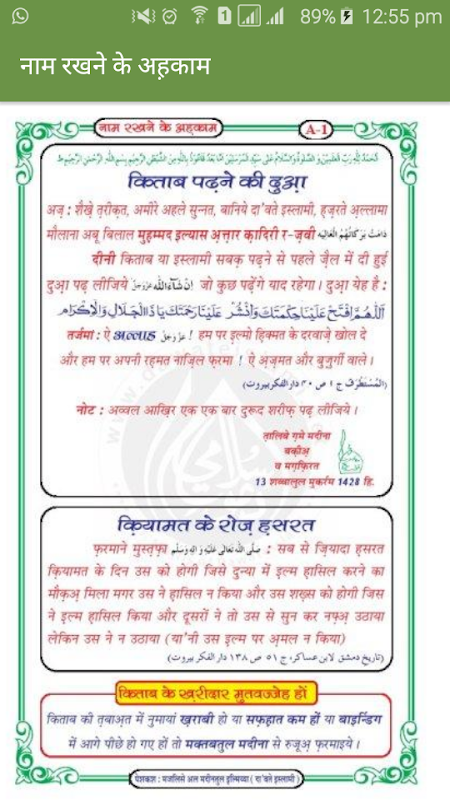 89% 12:55 pm
नाम रखने के अह़काम
नाम रखने के अह़काम
A-1
اَلْحَمْدُ لِلّٰهِ رَبِّ الْعٰلَمِيْنَ وَالصَّلٰوةُ وَالسَّلَامُ عَلٰى سَيِّدِ الْمُرْسَلِيْنَ اَمَّا بَعْدُ فَاَعُوْذُ بِاللّٰهِ مِنَ الشَّيْطٰنِ الرَّجِيْمِ بِسْمِ اللّٰهِ الرَّحْمٰنِ الرَّحِيْمِ ط
किताब पढ़ने की दुआ़
अज़ : शैख़े त़रीक़त, अमीरे अहले सुन्नत, बानिये दा'वते इस्लामी, ह़ज़रते अ़ल्लामा
मौलाना अबू बिलाल मुह़म्मद इल्यास अ़त्त़ार क़ादिरी र-ज़वी دَامَتْ بَرَكَاتُهُمُ الْعَالِيَه
दीनी किताब या इस्लामी सबक़ पढ़ने से पहले ज़ैल में दी हुई
दुआ़ पढ़ लीजिये اِنْ شَآءَاللّٰه عَزَّوَجَلَّ जो कुछ पढ़ेंगे याद रहेगा । दुआ़ येह है :
اَللّٰهُمَّ افْتَحْ عَلَيْنَا حِكْمَتَكَ وَانْشُرْ عَلَيْنَا رَحْمَتَكَ يَا ذَا الْجَلَالِ وَالْاِكْرَام
तर्जमा : ऐ अल्लाह عَزَّوَجَلَّ ! हम पर इल्मो ह़िक्मत के दरवाज़े खोल दे
और हम पर अपनी रह़मत नाज़िल फ़रमा ! ऐ अ़ज़मत और बुज़ुर्गी वाले ।
(اَلْمُسْتَطْرَف ج ١ ص ٤٠ دار الفكر بيروت)
नोट : अव्वल आख़िर एक एक बार दुरूद शरीफ़ पढ़ लीजिये ।
त़ालिबे ग़मे मदीना
बक़ीअ़
व मग़्फ़िरत
13 शव्वालुल मुकर्रम 1428 हि.
क़ियामत के रोज़ ह़सरत
फ़रमाने मुस्त़फ़ा صَلَّى اللهُ تَعَالٰى عَلَيْهِ وَاٰلِهٖ وَسَلَّم : सब से ज़ियादा ह़सरत
क़ियामत के दिन उस को होगी जिसे दुन्या में इल्म ह़ासिल करने का
मौक़अ़ मिला मगर उस ने ह़ासिल न किया और उस शख़्स को होगी जिस
ने इ़ल्म ह़ासिल किया और दूसरों ने तो उस से सुन कर नफ़्अ़ उठाया
लेकिन उस ने न उठाया (या'नी उस इ़ल्म पर अ़मल न किया)
(تاريخ دمشق لابن عساكر، ج ٥١ ص ١٣٨ دار الفكر بيروت)
किताब के ख़रीदार मुतवज्जेह हों
किताब की त़बाअ़त में नुमायां ख़राबी हो या सफ़ह़ात कम हों या बाइन्डिंग
में आगे पीछे हो गए हों तो मक्तबतुल मदीना से रुजूअ़ फ़रमाइये ।
पेशकश : मजलिसे अल मदीनतुल इ़ल्मिय्या (दा'वते इस्लामी)